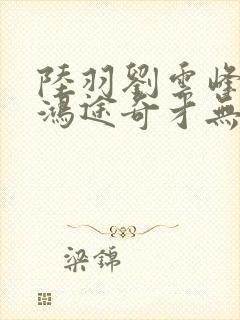 陸羽劉雲峰
鴻途奇才無
梁錦